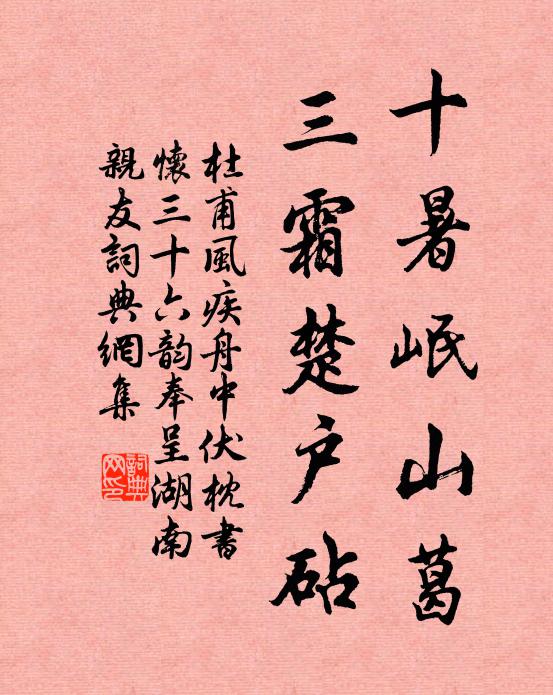 十暑岷山葛
三霜楚户砧
杜甫風疾舟中伏枕書
懷三十六韵奉呈湖南
親友詞典網集
詞典
网印